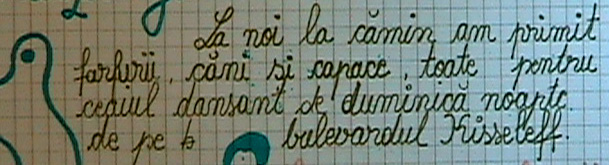 La noi la cămin am primit
farfurii, căni și capace, toate pentru
ceaiul dansant de duminică noapte
de pe bulevardul Kisseleff.